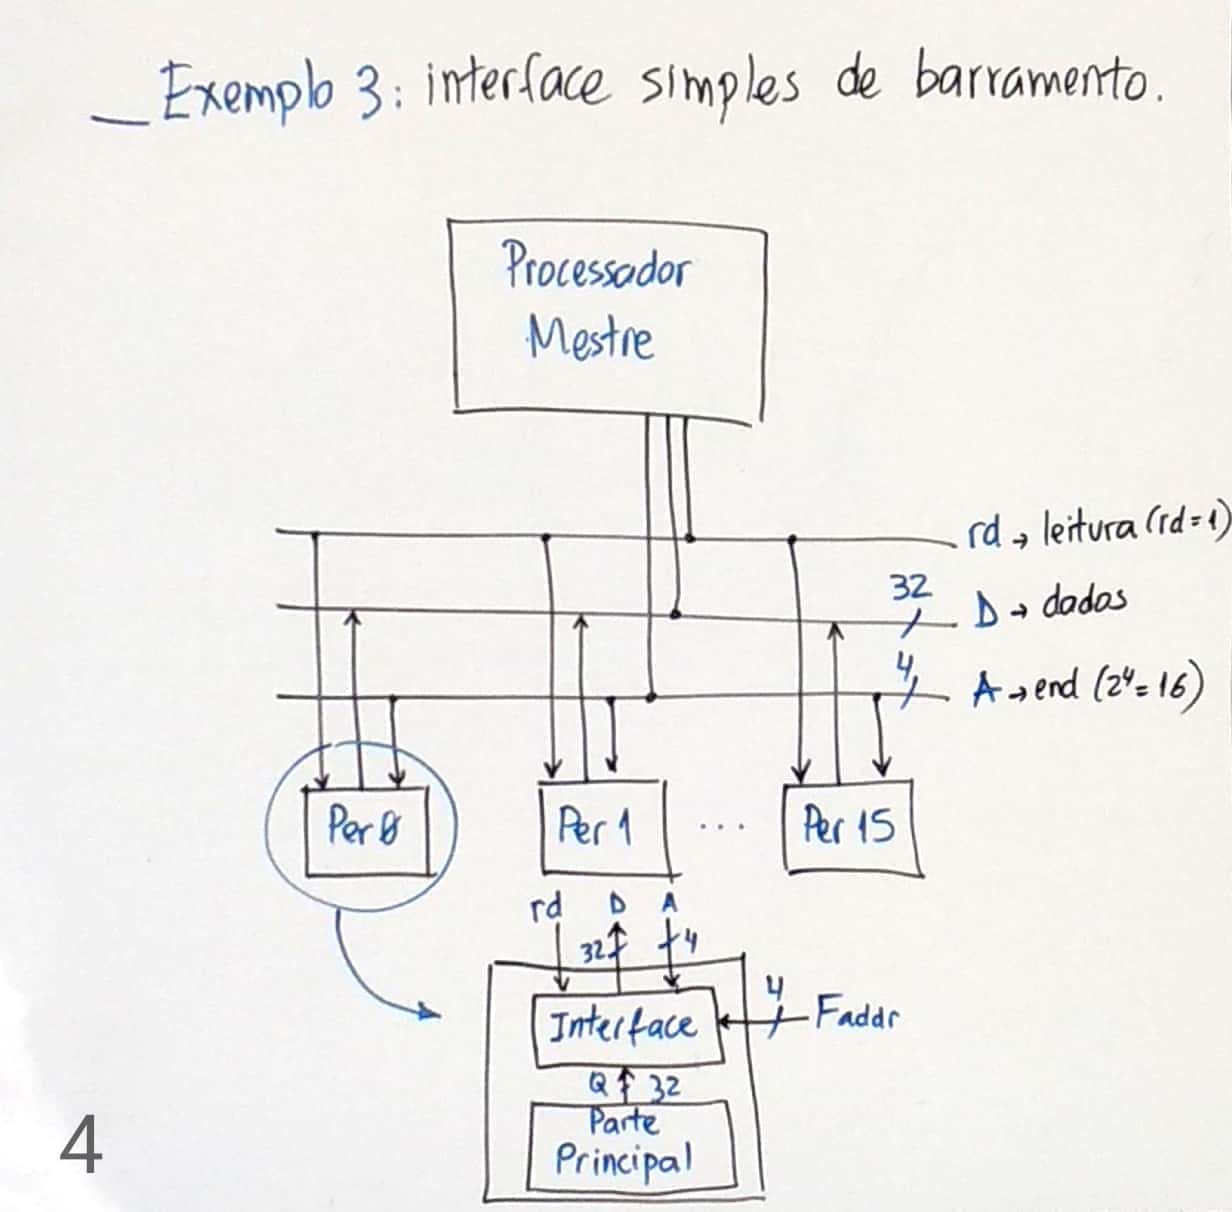 Exemplo 3: interface simples de barramento.
Processador
Mestre
rd → leitura (rd=1)
32
D → dados
4
A → end (2⁴=16)
Per 0
Per 1
...
Per 15
rd D A
32 4
4
Interface
Faddr
Q 32
Parte
Principal
4